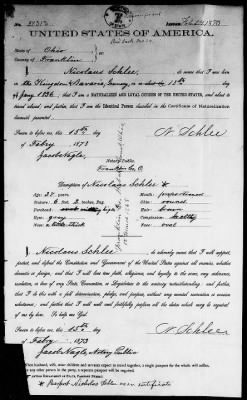 No. 31315
ISSUED Feb 20th 1873
UNITED STATES OF AMERICA.
State of Ohio
County of Franklin
I, Nicolaus Schlee, do swear that I was born
in the Kingdom of Bavaria, Germany, on or about the 13th day
of Jany 1836, that I am a NATURALIZED AND LOYAL CITIZEN OF THE UNITED STATES,
and about to travel abroad, and that I am the Identical Person described in the Certificate of Naturalization
herewith presented.
Sworn to before me, this 15th
day of Febry 1873
Jacob Nagle,
Notary Public,
Franklin Co, O
N. Schlee
Description of Nicolaus Schlee *
Age: 37 years
Stature: 6 feet 2 inches, Eng.
Forehead: high
Eyes: gray
Nose:
Mouth: proportioned
Chin: round
Hair:
Complexion: healthy
Face: oval
I, Nicolaus Schlee, do solemnly swear that I will support,
protect, and defend the Constitution and Government of the United States against all enemies, whether
domestic or foreign; and that I will bear true faith, allegiance, and loyalty to the same, any ordinance,
resolution, or law of any State, Convention, or Legislature to the contrary notwithstanding; and further,
that I do this with a full determination, pledge, and purpose, without any mental reservation or evasion
whatsoever; and further, that I will well and faithfully perform all the duties which may be required of
me by law. So help me God.
Sworn to before me, this 15th
day of Febry 1873
Jacob Nagle, Notary Public
N. Schlee
husband, wife, minor children and servants expect to travel together, a single passport for the whole will suffice.
any other person in the party, a separate passport will be required.
* Passport Nicholas Schlee over certificate